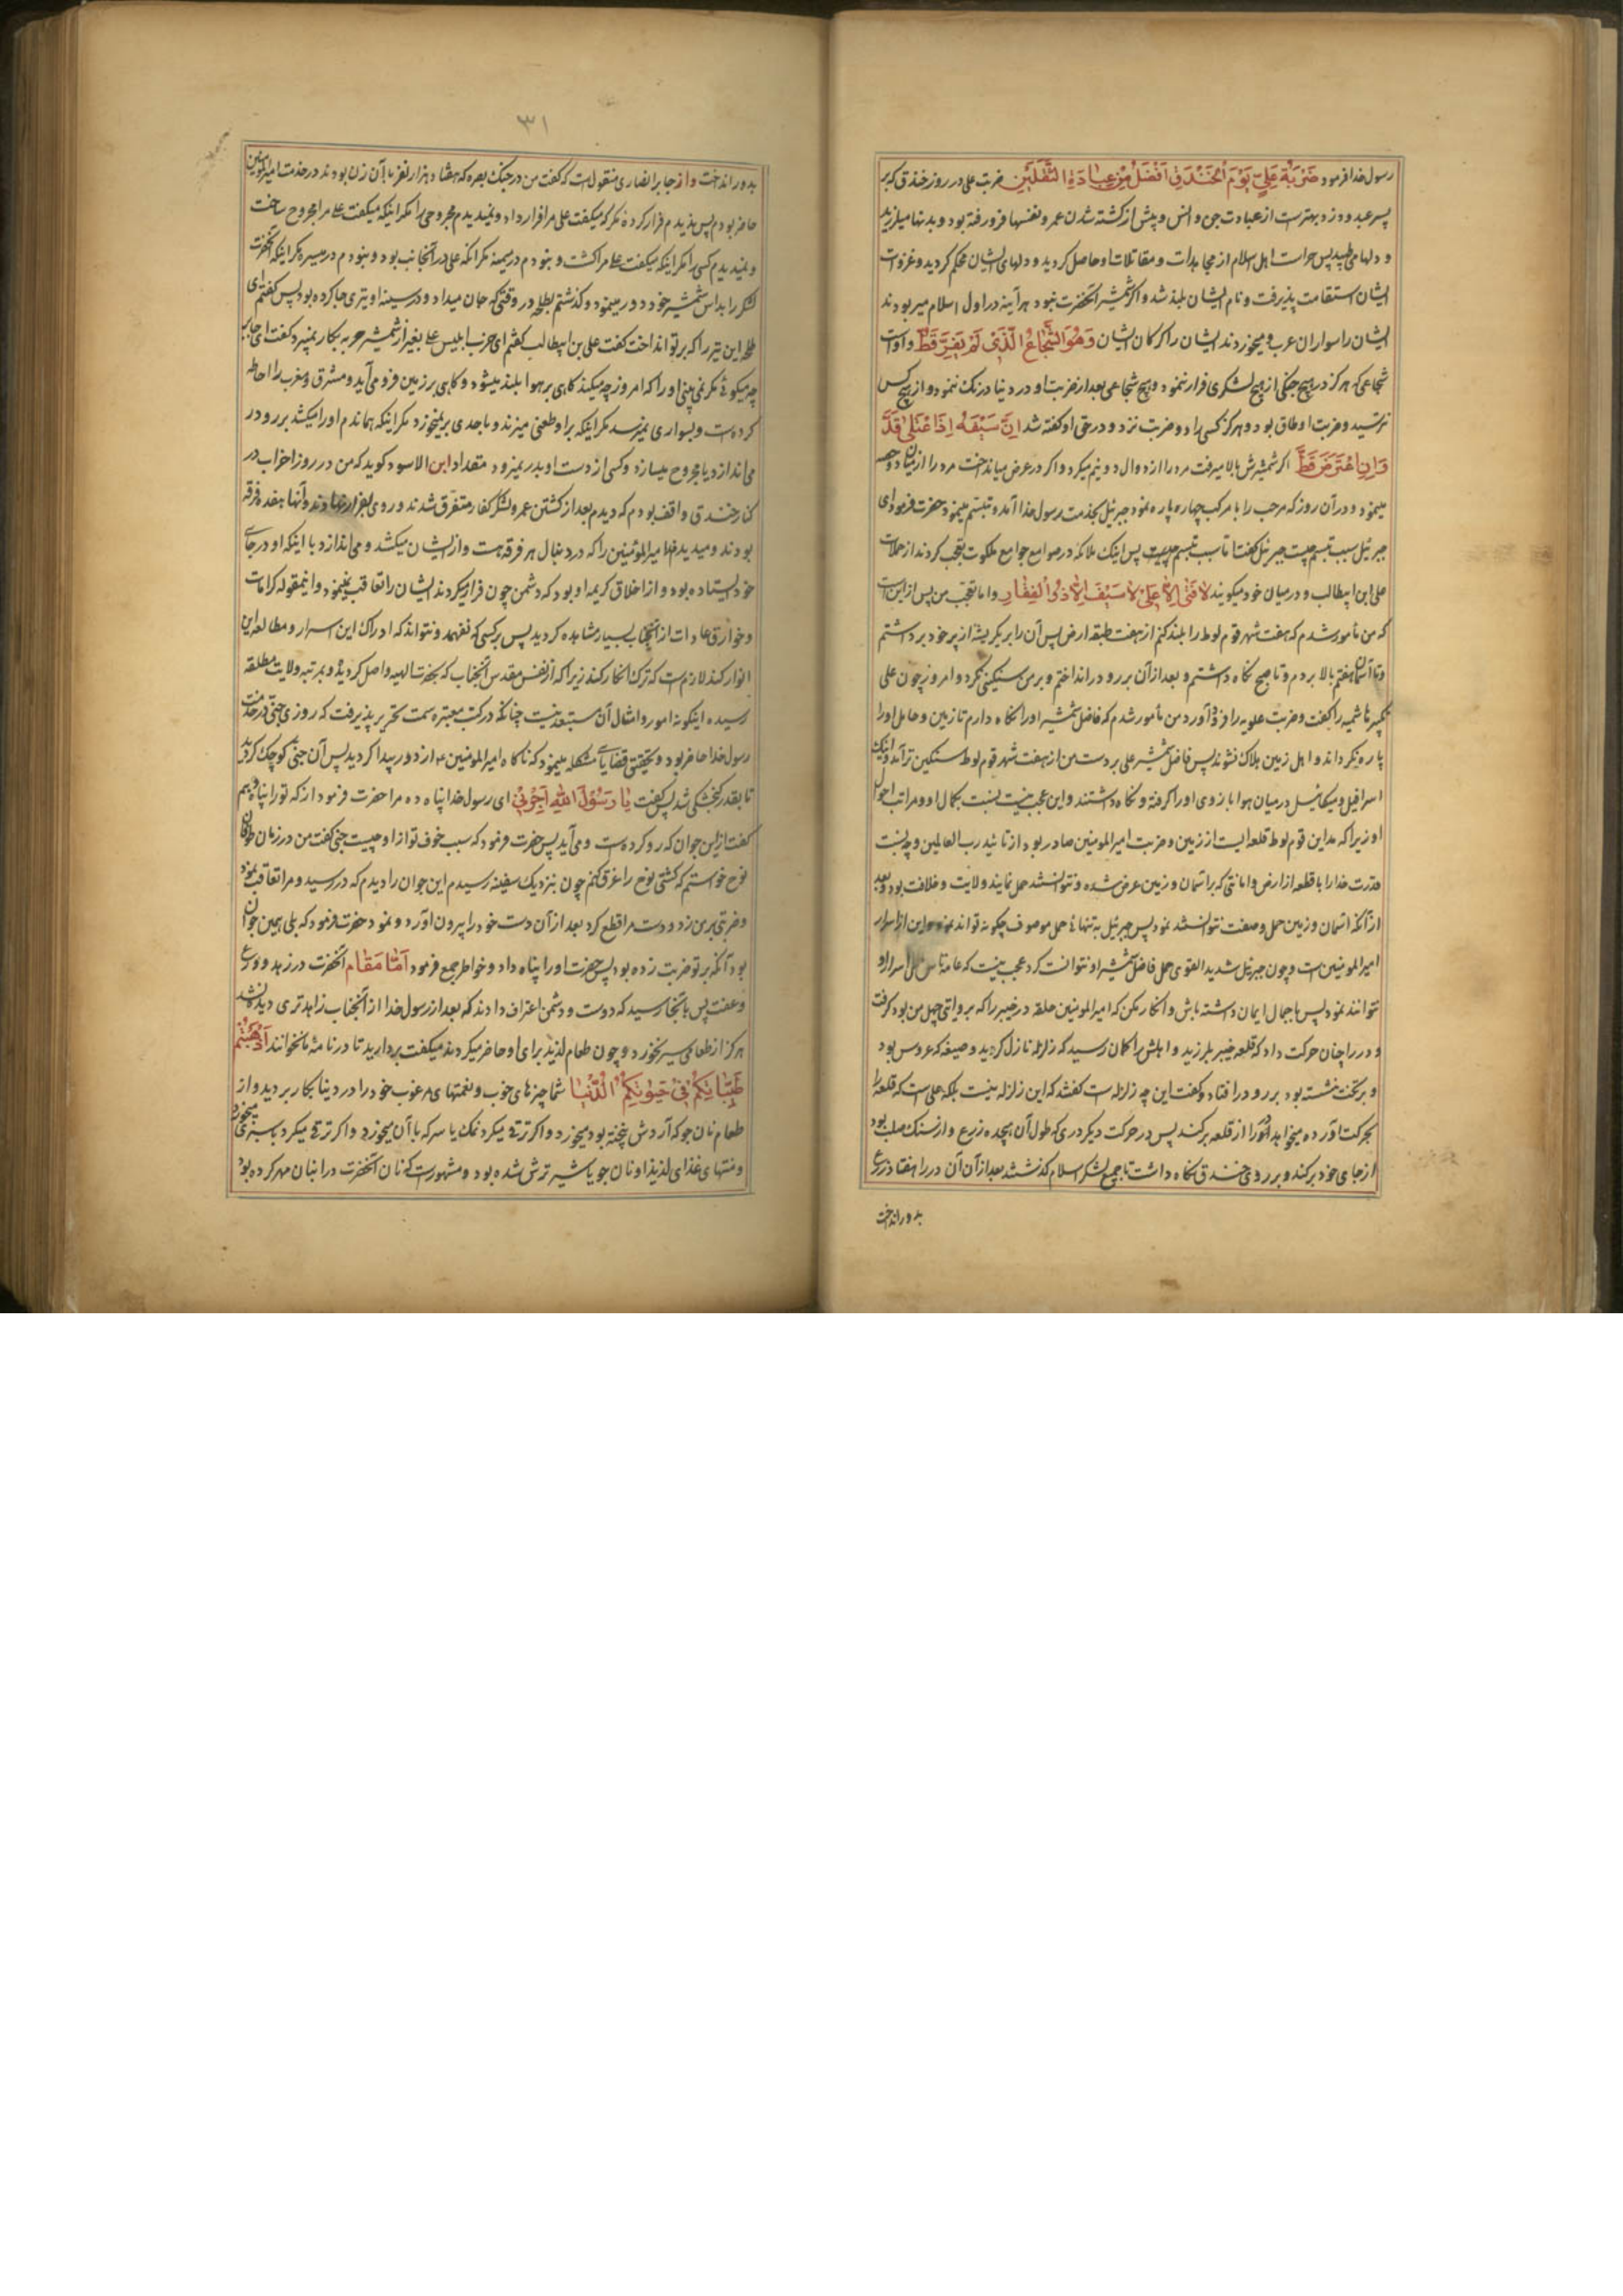 رسول خدا فرمود ضَرْبَةُ عَلِيٍّ يَوْمَ الْخَنْدَقِ اَفْضَلُ مِنْ عِبَادَةِ الثَّقَلَيْنِ ضربت علی در روز خندق که بر
پسر عبدود زد بهتر است از عبادت جن و انس و پیش از کشته شدن عمرو نفسها فرو رفته بود و بدنها میلرزید
و دلها می طپید پس جرات اهل اسلام از مجاهدات و مقاتلات او حاصل کردید و دلهای ایشان محکم کردید و غزوات
ایشان استقامت پذیرفت و نام ایشان بلند شد و اکر شمشیر آنحضرت نبود هر آینه در اول اسلام میربودند
ایشان را سواران عرب و میخوردند ایشان را کرکان ایشان وَهُوَ الشُّجَاعُ الَّذِي لَمْ يَفِرَّ قَطُّ و اوست
شجاعی که هرکز در هیچ جنکی از هیچ لشکری فرار ننمود و هیچ شجاعی بعد از ضربت او در دنیا درنک ننمود و از هیچ کس
نترسید و ضربت او طاق بود و هرکز کسی را دو ضربت نزد و در حق او کفته شد اِنَّ سَيْفَهُ اِذَا عْتَلىٰ قَدَّ
وَاِنِ اعْتَرَضَ قَطَّ اکر شمشیرش بالا میرفت مرد را از دوال دو نیم میکرد و اکر در عرض میانداخت مرد را از میان دو حصه
مینمود و در آن روز که مرحب را با مرکب چهار پاره نمود جبرئیل بخدمت رسول خدا آمد و تبسم مینمود حضرت فرمود ای
جبرئیل سبب تبسم چیست جبرئیل کفت اما سبب تبسم چیست پس اینک ملائکه در صوامع جوامع ملکوت تعجب کردند از حملات
علی ابن ابیطالب و در میان خود میکویند لاٰ فَتىٰ اِلاّٰ عَلِيٌّ لاٰ سَيْفَ اِلاّٰ ذُو الْفِقٰارِ و اما تعجب من پس از این است
که من مأمور شدم که هفت شهر قوم لوط را بلند کنم از هفت طبقه ارض پس آن را بر یک ریشه از پر خود برداشتم
و تا آسمان هفتم بالا بردم و تا صبح نکاه داشتم و بعد از آن بر رو در انداختم و بر من سنکینی نکرد و امروز چون علی
تکبیر هاشمیه را کفت و ضربت علویه را فرود آورد من مأمور شدم که فاضل شمشیر او را نکاه دارم تا زمین و حامل او را
پاره نکرداند و اهل زمین هلاک نشوند پس فاضل شمشیر علی بر دست من از هفت شهر قوم لوط سنکین تر آمد و اینک
اسرافیل و میکائیل در میان هوا بازوی او را کرفته و نکاه داشتند و این عجب نیست نسبت بکمال او و مراتب احوال
او زیرا که مداین قوم لوط قلعه ایست از زمین و ضربت امیر المومنین صادر بود از تائید رب العالمین و چه نسبت
قدرت خدا را با قلعه از ارض و امانتی که بر آسمان و زمین عرض شده و نتوانستند حمل نمایند ولایت و خلافت بود و بعد
از آنکه آسمان و زمین حمل وصفت نتوانستند نمود پس جبرئیل به تنهائی حمل موصوف چکونه تواند نمود و این از اسرار
امیر المومنین است و چون جبرئیل شدید القوی حمل فاضل شمشیر او نتوانست کرد عجب نیست که عامه ناس حمل اسرار او
نتوانند نمود پس باجمال ایمان داشته باش و انکار مکن که امیر المومنین حلقه در خیبر را که بروایتی چهل من بود کرفت
و در را چنان حرکت داد که قلعه خیبر بلرزید و اهلش را کمان رسید که زلزله نازل کردید و صیفه که عروس بود
و بر تخت نشسته بود بر رو در افتاد و کفت این چه زلزله است کفتند که این زلزله نیست بلکه علی است که قلعه را
بحرکت آورده میخواهد که در را از قلعه بر کند پس در حرکت دیکر دری که طول آن هجده زرع و از سنک صلب بود
از جای خود بر کند و بر روی خندق نکاه داشت تا جمیع لشکر اسلام کذشتند بعد از آن آن در را هفتاد ذرع
بدور انداخت
٣١
بدور انداخت و از جابر انصاری منقول است که کفت من در جنک بصره که هفتاد هزار نفر با آن زن بودند در خدمت امیر المومنین
حاضر بودم پس ندیدم فرار کرده مکر که میکفت علی مرا فرار داد و نمیدیدم مجروحی را مکر اینکه میکفت علی مرا مجروح ساخت
و نمیدیدم کسی را مکر اینکه میکفت علی مرا کشت و نبودم در میمنه مکر انکه علی در آنجانب بود و نبودم در میسره مکر اینکه آنحضرت
لشکر را بداس شمشیر خود درو مینمود و کذشتم بطلحه در وقتی که جان میداد و در سینه او تیری جا کرده بود پس کفتم ای
طلحه این تیر را که بر تو انداخت کفت علی بن ابیطالب کفتم ای حزب ابلیس علی بغیر از شمشیر حربه بکار نمیبرد کفت ای جابر
چه میکوئی مکر نمی بینی او را که امروز چه میکند کاهی بر هوا بلند میشود و کاهی بر زمین فرو می آید و مشرق و مغرب را احاطه
کرده است و بسواری نمیرسد مکر اینکه بر او طعنی میزند و باحدی بر نمیخورد مکر اینکه هماندم او را میکشد بر رو در
می اندازد یا مجروح میسازد و کسی از دست او بدر نمیرود مقداد ابن الاسود کوید که من در روز احزاب در
کنار خندق واقف بودم که دیدم بعد از کشتن عمرو لشکر کفار متفرق شدند و روی بفرار نهادند و آنها هفده فرقه
بودند و میدیدم امیر المؤمنین را که در دنبال هر فرقه هست و از ایشان میکشد و می اندازد با اینکه او در جای
خود ایستاده بود و از اخلاق کریمه او بود که دشمن چون فرار میکردند ایشان را تعاقب نمینمود و اینمقوله کرامات
و خوارق عادات از آنجناب بسیار مشاهده کردید پس بر کسی که نفهمد و نتواند که ادراک این اسرار و مطالعه این
انوار کند لازم است که ترک انکار کند زیرا که از نفس مقدس آنجناب که بحضرت الهیه واصل کردیده و بمرتبه ولایت مطلقه
رسیده اینکونه امور و امثال آن مستبعد نیست چنانکه در کتب معتبره سمت تحریر پذیرفت که روزی جنی در خدمت
رسول خدا حاضر بود و تحقیق قضایای مشکله مینمود که ناکاه امیر المومنین ع از دور پیدا کردید پس آن جنی کوچک کردید
تا بقدر کنجشکی شد پس کفت يٰا رَسُوْلَ اللهِ اَجِرْنِيْ ای رسول خدا پناه ده مرا حضرت فرمود از که تو را پناه دهم
کفت از این جوان که رو کرده است و می آید پس حضرت فرمود که سبب خوف تو از او چیست جنی کفت من در زمان طوفان
نوح خواستم که کشتی نوح را غرق کنم چون بنزدیک سفینه رسیدم این جوان را دیدم که در رسید و مرا تعاقب نمود
و ضربتی بر من زد و دست مرا قطع کرد بعد از آن دست خود را بیرون آورد و نمود حضرت فرمود که بلی همین جوان
بود آنکه بر تو ضربت زده بود پس حضرت او را پناه داد و خواطر جمع فرمود اَمّٰا مَقٰام آنحضرت در زهد و ورع
و عفت پس بانجا رسید که دوست و دشمن اعتراف دادند که بعد از رسول خدا از آنجناب زاهدتری دیده نشد
هرکز از طعامی سیر نخورد و چون طعام لذیذ برای او حاضر میکردند میکفت بردارید تا در نامه ما نخوانند اَذْهَبْتُمْ
طَيِّبٰاتِكُمْ فِيْ حَيٰوتِكُمُ الدُّنْيٰا شما چیزهای خوب و نعمتهای مرغوب خود را در دنیا بکار بردید و از
طعام نان جو که آردش نپخته بود میخورد و اکر ترقی میکرد نمک یا سرکه با آن میخورد و اکر ترقی میکرد با سبزی میخورد
و منتهای غذای لذیذ او نان جو یا شیر ترش شده بود و مشهور است که نان آنحضرت در انبان مهر کرده بود